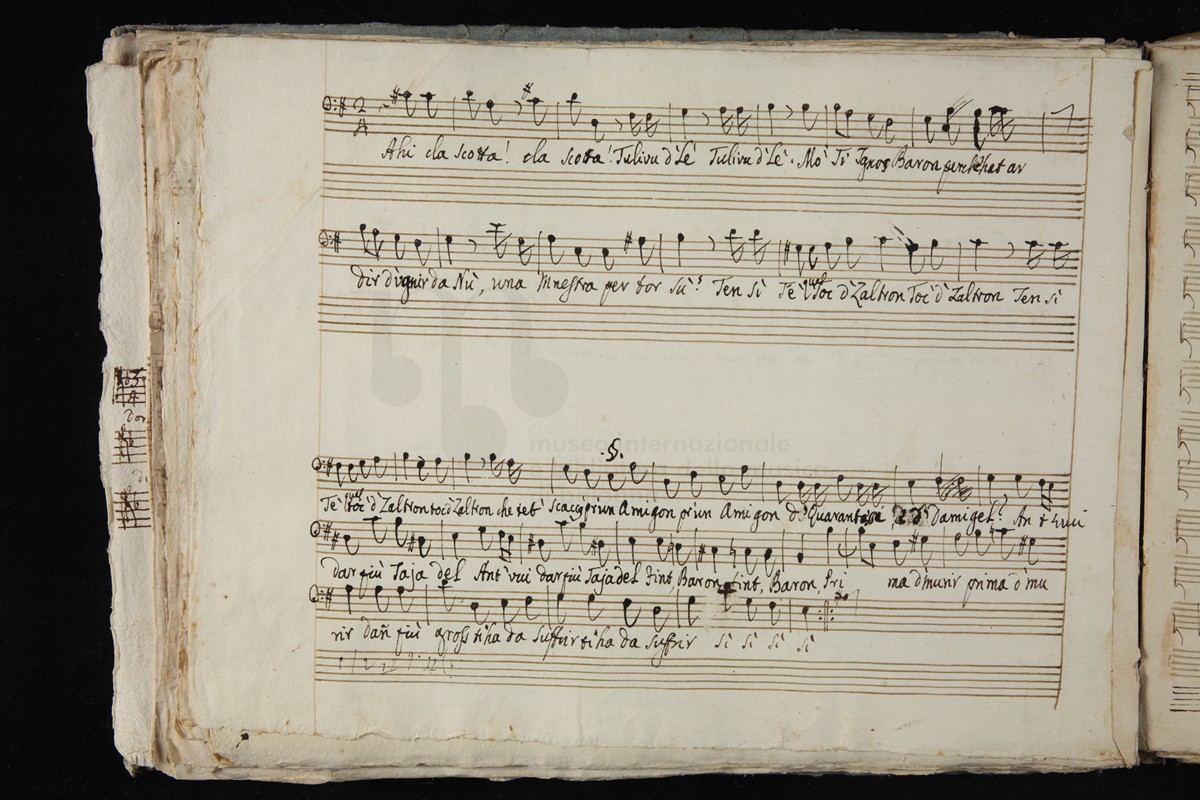 Ahi cla scotta! cla scotta! Tulivu d'Lè Tulivu d'Lè. Mò Ti Baron perchè hat av
dir d'vgnir da Nù, una Mnestra per tor sù? Ten sì Tè quel Toc d'Zaltron Toc d'Zaltron Ten sì
museo internazionale
della musica
.S.
Tè quel toc d'Zaltron toc d'Zaltron che tet priun Amigon priun Amigon d' Quaranta Damigel? An t vuoi
dar più Taja del Ant' vui dar più Taja del fint, Baron, fint, Baron, Pri ma d'murir prima d mu
rir dañ più gross t'ha da suffrir t'ha da suffrir sì sì sì sì